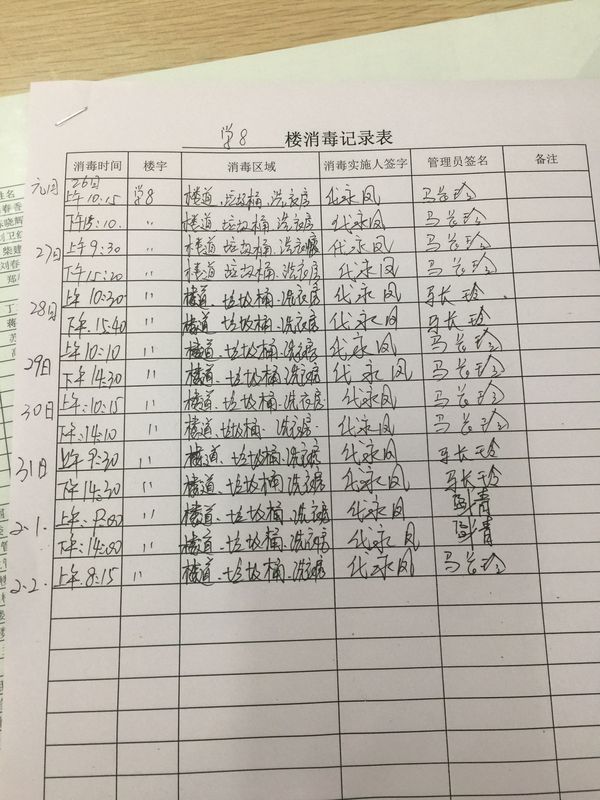 学8 楼消毒记录表
消毒时间 楼宇 消毒区域 消毒实施人签字 管理员签名 备注
元月26日 上午10:15 学8 楼道、垃圾桶、洗衣房 代永凤 马长珍
下午15:10. 〃 楼道 垃圾桶、洗衣房 代永凤 马长珍
27日 上午9:30 〃 楼道 垃圾桶、洗衣房 代永凤 马长珍
下午15:20 〃 楼道 垃圾桶、洗衣房 代永凤 马长珍
28日 上午10:30 〃 楼道、垃圾桶、洗衣房 代永凤 马长珍
下午.15:40 〃 楼道、垃圾桶、洗衣房 代永凤 马长珍
上午10:10 〃 楼道、垃圾桶、洗衣房 代永凤 马长珍
29日 下午14:30 〃 楼道、垃圾桶、洗衣房 代永凤 马长珍
30日 上午:10:15 〃 楼道、垃圾桶、洗衣房 代永凤 马长珍
下午:14:10 〃 楼道、垃圾桶、洗衣房 代永凤 马长珍
31日 上午9:30 〃 楼道、垃圾桶、洗衣房 代永凤 马长珍
下午14:30 〃 楼道、垃圾桶、洗衣房 代永凤 马长珍
2.1. 上午.9:00 〃 楼道、垃圾桶、洗衣房 代永凤
下午:14:00 〃 楼道、垃圾桶、洗衣房 代永凤
2.2. 上午.8:15 〃 楼道、垃圾桶、洗衣房 代永凤 马长珍